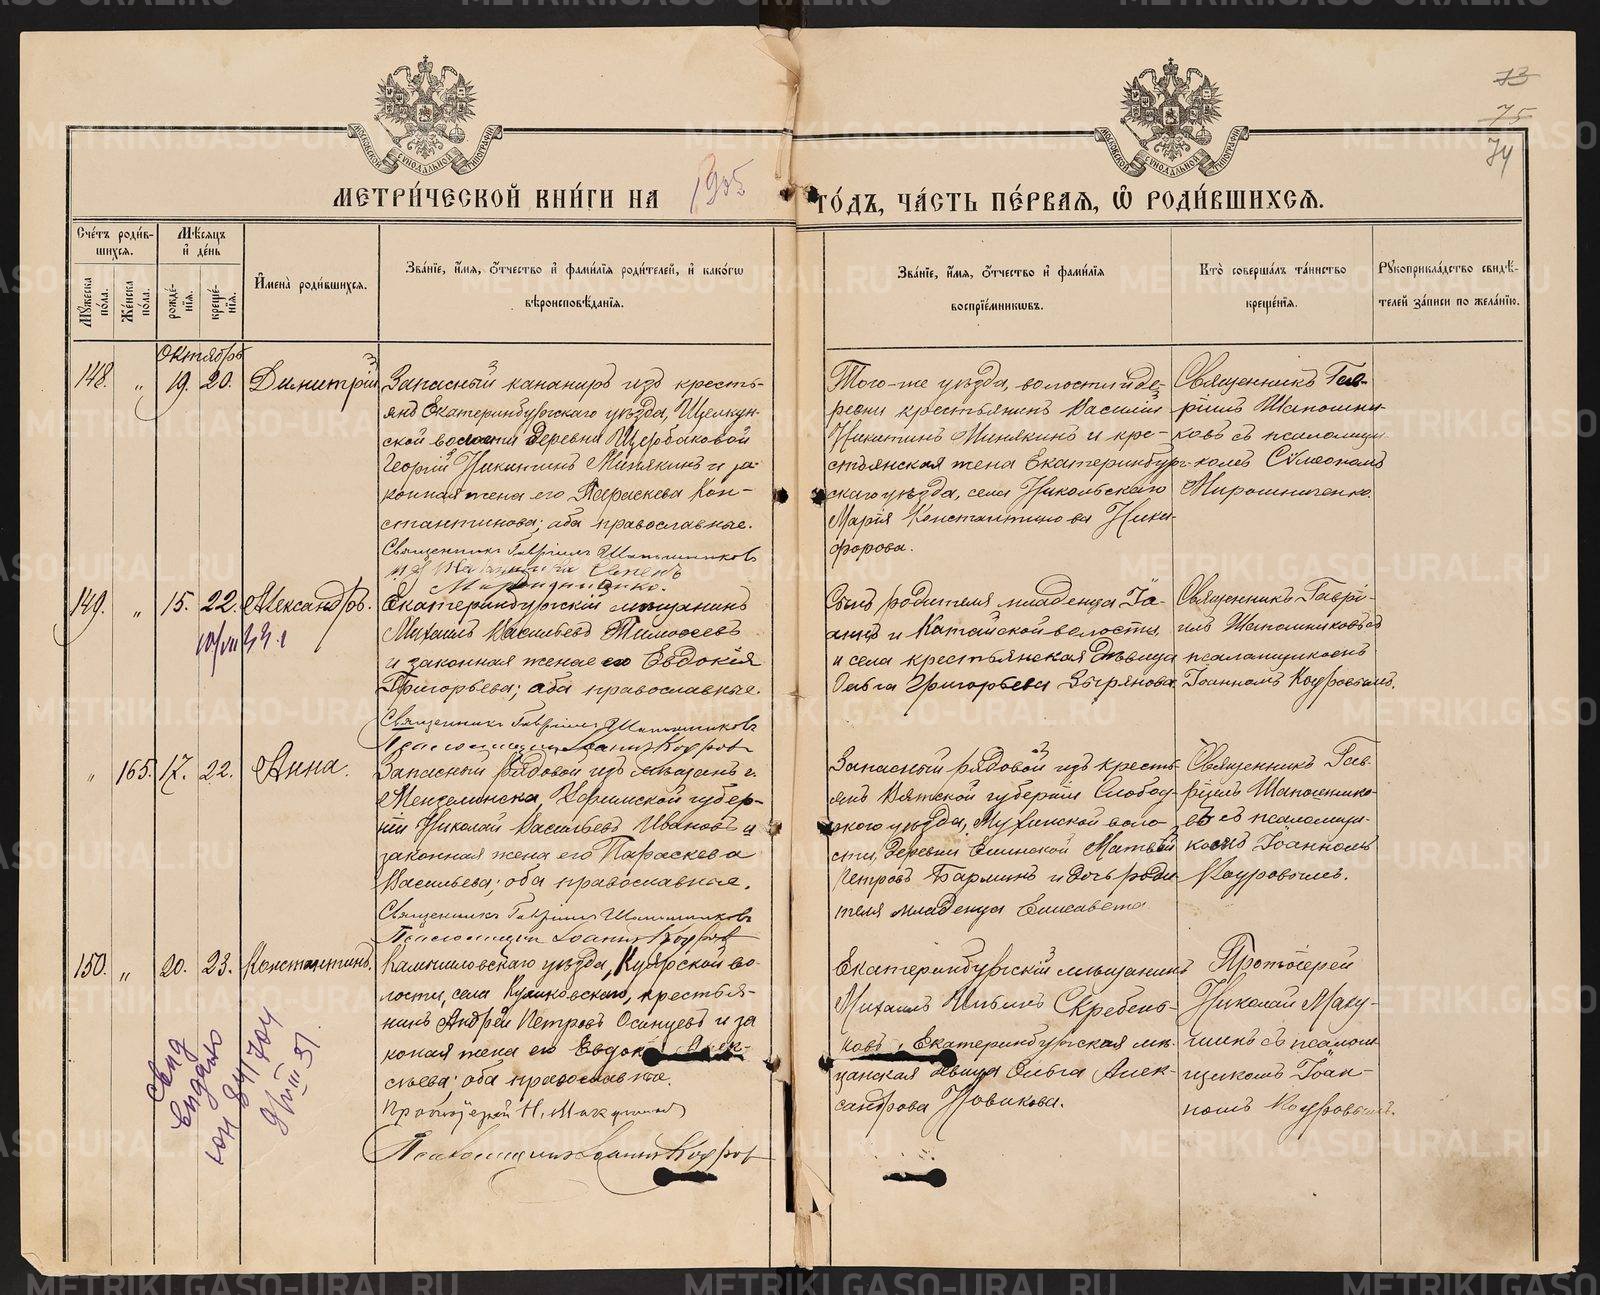 73
75
74
МОСКОВСКОЙ СѴНОДАЛЬНОЙ ТИПОГРАФІИ
МОСКОВСКОЙ СѴНОДАЛЬНОЙ ТИПОГРАФІИ
МЕТРИ́ЧЕСКОЙ КНИ́ГИ НА 1905 ГО́ДЪ, ЧА́СТЬ ПЕ́РВАЯ, Ѡ҆ РОДИ́ВШИХСЯ.
Сче́тъ роди́в-
шихся.
Мѣ́сяцъ
и҆ де́нь
Мꙋ́жеска по́ла.
Же́нска по́ла.
рожде́-
нїѧ.
креще́-
нїѧ.
И҆мена̀ роди́вшихся.
Зва́нїе, и҆́мя, ѻ҆́тчество и҆ фами́лїя роди́телей, и҆ како́гѡ
вѣроисповѣ́данїя.
Зва́нїе, и҆́мя, ѻ҆́тчество и҆ фами́лїя
воспрїе́мникѡвъ.
Кто̀ соверша́лъ та́инство
креще́нїя.
Рꙋкоприкла́дство свидѣ́-
телей за́писи по жела́нїю.
Октябрь
148. „ 19. 20. Димитрій
Запасный канониръ изъ кресть-
янъ Екатеринбургскаго уѣзда, Щелкун-
ской волости деревни Щербаковой
Георгій Никитинъ Минякинъ и за-
конная жена его Параскева Кон-
стантинова; оба православные.
Священникъ Гавріилъ Шапошниковъ
Того-же уѣзда, волости и де-
ревни крестьянинъ Василій
Никитинъ Минякинъ и кре-
стьянская жена Екатеринбург-
скаго уѣзда, села Никольскаго
Марія Константинова Ники-
форова.
Священникъ Гав-
ріилъ Шапошни-
ковъ съ псаломщи-
комъ Сѵмеономъ
Мирошниченко.
149. „ 15. 22. Александръ.
Екатеринбургскій мѣщанинъ
Михаилъ Васильевъ Тимофеевъ
и законная жена его Евдокія
Григорьева; оба православные.
Священникъ Гавріилъ Шапошниковъ
Псаломщикъ Іоаннъ Коуровъ
Сынъ родителя младенца Іо-
аннъ и Катайской волости
и села крестьянская дѣвица
Ольга Григорьева Зырянова.
Священникъ Гаврі-
илъ Шапошниковъ съ
псаломщикомъ
Іоанномъ Коуровымъ.
„ 165. 17. 22. Анна.
Запасный рядовой изъ мѣщанъ г.
Мензелинска, Уфимской губер-
ніи Николай Васильевъ Ивановъ и
законная жена его Параскева
Васильева; оба православные.
Священникъ Гавріилъ Шапошниковъ
Псаломщикъ Іоаннъ Коуровъ
Запасный рядовой изъ кресть-
янъ Вятской губерніи Слобод-
ского уѣзда, Мухинской воло-
сти, деревни Матвѣй
Петровъ Барминъ и дочь роди-
теля младенца Елисавета
Священникъ Гав-
ріилъ Шапошнико-
въ съ псаломщи-
комъ Іоанномъ
Коуровымъ.
150. „ 20. 23. Константинъ.
Камышловскаго уѣзда, Куярской во-
лости, села Куликовскаго, крестья-
нинъ Андрей Петровъ Осинцевъ и за-
коная жена его Евдокія Алек-
сѣева; оба православные.
Протоіерей Н. Макушинъ
Псаломщикъ Іоаннъ Коуровъ
Екатеринбургскій мѣщанинъ
Михаилъ Ильинъ Скребень-
ковъ и Екатеринбургская мѣ-
щанская дѣвица Ольга Алек-
сандрова Новикова.
Протоіерей
Николай Маку-
шинъ съ псалом-
щикомъ Іоан-
номъ Коуровымъ.
METRIKI.GASO-URAL.RU